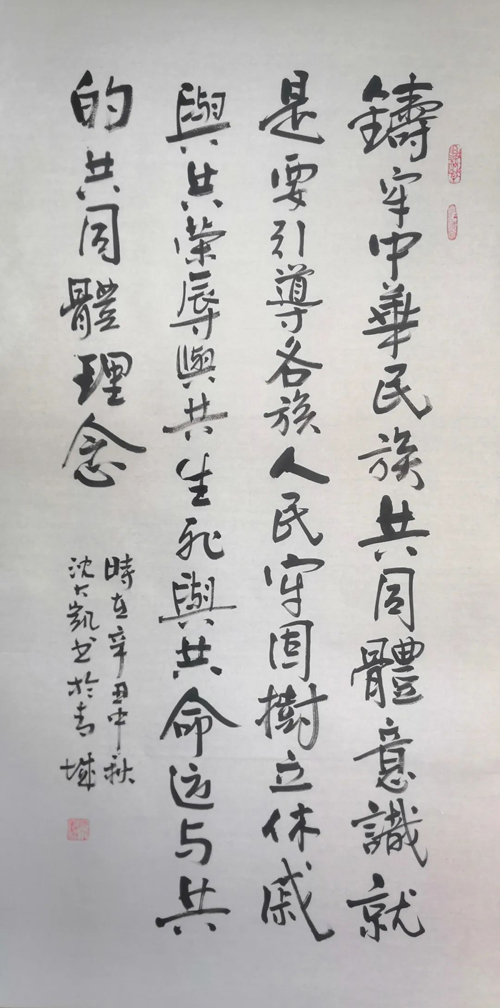 鑄牢中華民族共同體意識就
是要引導各族人民牢固樹立休戚
與共榮辱與共生死與共命运与共
的共同體理念
時在辛丑中秋
沈大凱书於青城